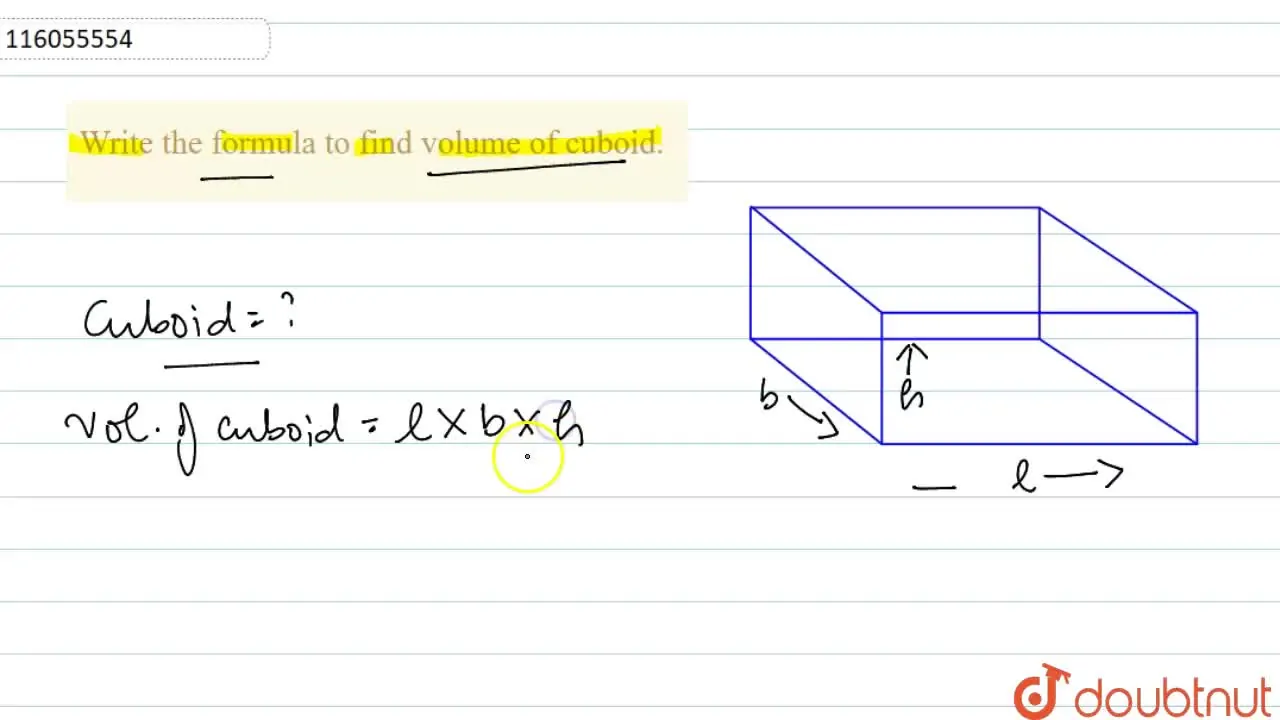 116055554
Write the formula to find volume of cuboid.
Cuboid = ?
Vol. of cuboid = l × b × h
b
h
l
doubtnut